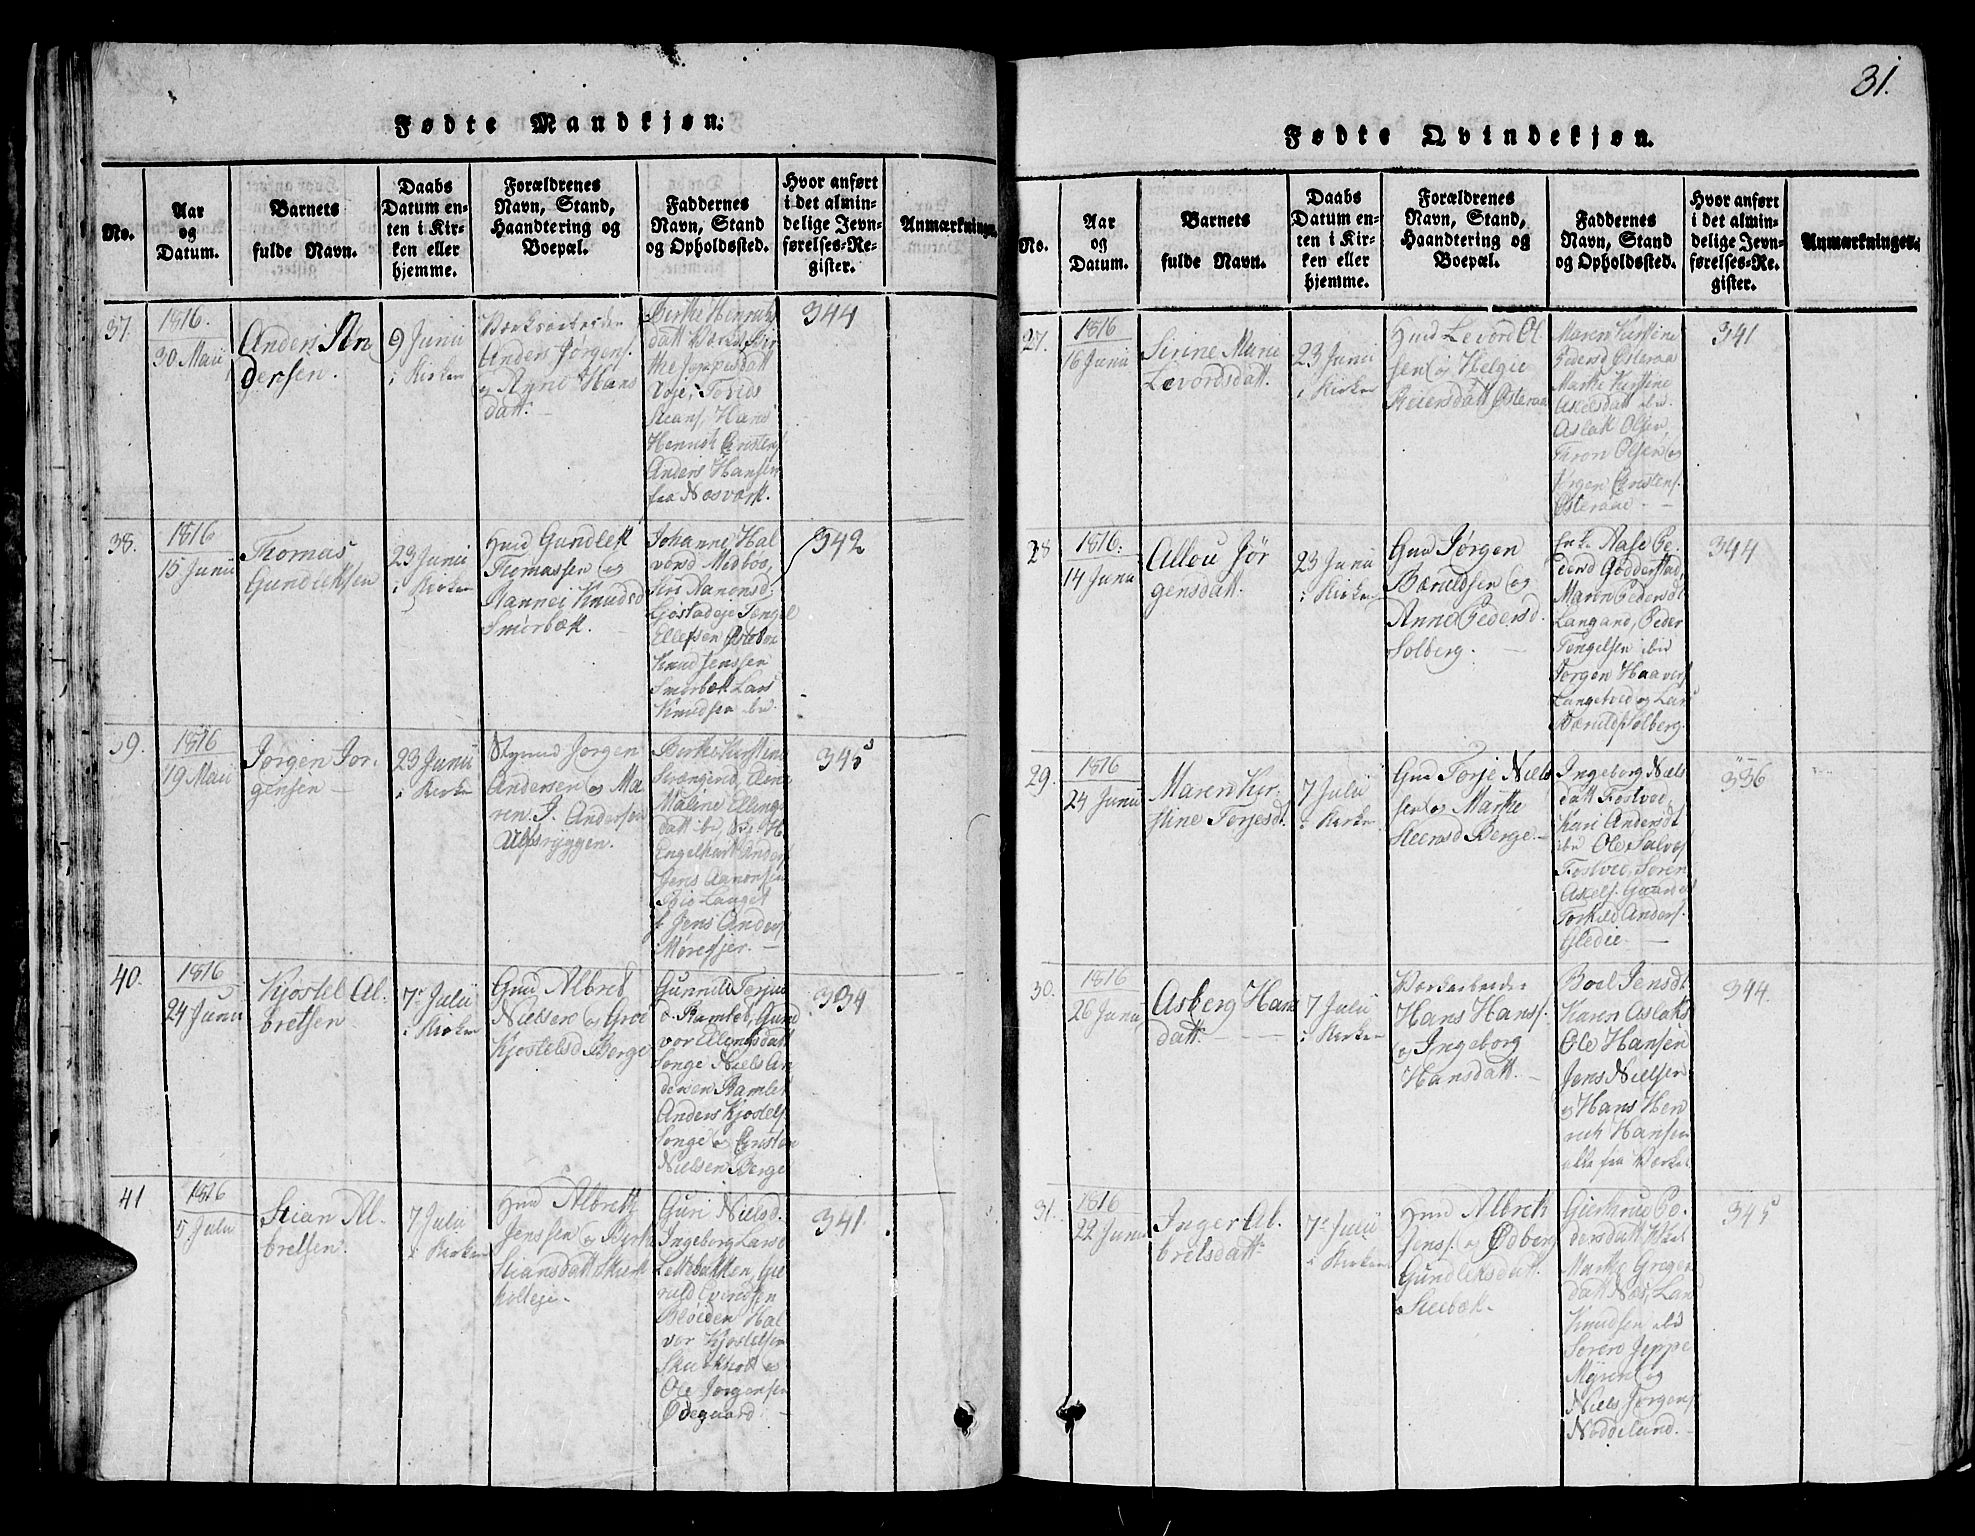 31.
Fødte Mandkjøn.
No.
Aar
og
Datum.
Barnets
fulde Navn.
Daabs
Datum en-
ten i Kir-
ken eller
hjemme.
Forældrenes
Navn, Stand,
Haandtering og
Boepæl.
Faddernes
Navn, Stand
og Opholdssted.
Hvor anført
i det almin-
delige Jevn-
førelses-Re-
gister.
Anmærkninger.
37.
1816.
30 Maii
Anders An
dersen.
9 Junii
i Kirken
Anders Jørgens.
og Hans
datt.
Berthe Henrichs
datt
the Jeppesdatt
Hans
Henrich Cristens.
Anders Hansen
fra Næsværk.
344
38.
1816
15 Junii
Thomas
Gundleksen
23 Junii
i Kirken
Gmd Gundlek
Thomassen og
Knudsd
Smørbæk.
Johanne Hal
vorsd Midbøe,
Ellefsen
Knud Jenssen
Smørbæk Lars
Knudsen ibd
342
39.
1816
19 Maii
Jørgen Jør-
gensen
23 Junii
i Kirken
Jørgen
Andersen og Ma
ren J. Andersen
Ulfsryggen.
Berthe Kirstine
Maline Ellings
datt ibd
Engelhart Anders
Jens Aanonsen
Langet
Jens Anders.
Morefjer.
345
40.
1816
24 Junii
Kjøstel Al-
bretsen
7 Julii
i Kirken
Gmd Albret
Nielsen og Groe
Kjøstelsd Berge
Gunnild Terjus
d. Ramlet, Gund
vor Ellensdatt
Songe Niels An
dersen Ramlet
Anders Kjøstels.
Songe og Cristen
Nielsen Berge
334
41
1816
5 Julii
Stian Al-
bretsen.
7 Julii
i Kirken
Hmd Albrett
Jenssen og Birthe
Stiansdatt Skurk
Guri Nielsd.
Ingeborg Larsd
Evindsen
Hal
vor Kjøstelsen
Ole Jørgensen
Ødegaard.
341
Fødte Qvindekjøn.
No.
Aar
og
Datum.
Barnets
fulde Navn.
Daabs
Datum en-
ten i Kir-
ken eller
hjemme.
Forældrenes
Navn, Stand,
Haandtering og
Boepæl.
Faddernes
Navn, Stand
og Opholdssted.
Hvor anført
i det almin-
delige Jevn-
førelses-Re-
gister.
Anmærkninger.
27.
1816
16 Junii
Sirine Marie
Levordsdatt.
23 Junii
i Kirken
Hmd Levord Ol
sen og Helgie
Reiersdatt Østeraa
Maren Kirstine
Pedersd Østeraa
Marthe Kirstine
Axelsdatt ibd.
Aslak Olsen,
Tron Olsen og
Jørgen Cristens.
Østeraae.
341
28
1816.
14 Junii
Allou Jør
gensdatt.
23 Junii
i Kirken
Gmd Jørgen
Baruldsen og
Anne Pedersd.
Solberg.
Enke Aase Pe
dersd Godderstad,
Maren Pedersdt
Langand, Peder
Tengelsen ibd
Jørgen Haavers.
Langetved og Lars
Baruldss. Solberg.
344
29.
1816
24 Junii
Maren Kir-
stine Terjesdt.
7 Julii
i Kirken
Gmd Terje Niels
sen og Marthe
Steensd Berge
Ingeborg Niels
datt Fostved,
Kari Andersdt
ibd Ole Salves.
Fostved, Søren
Axels.
Torkild Anders.
Gledie.
336
30.
1816
26 Junii
Asberg Hans
datt.
7 Julii
i Kirken
Værkarbeider
Hans Hans.
og Ingeborg
Hansdatt.
Boel Jensdt
Karen Aslaks
Ole Hansen
Jens Nielsen
og Hans Hen
rich Hansen
alle fra Værket
344.
31.
1816
22 Junii
Inger Al-
bretsdatt
7 Julii
i Kirken
Hmd Albrek
Jenss. og Ødberg
Gundleksdatt.
Stiebæk.
Gierthrue Pe-
dersdatt
Marthe Greger
datt Næs, Lars
Knudsen ibd
Søren Jeppe
Myren og
Niels Jørgens.
Nøddelund.
345